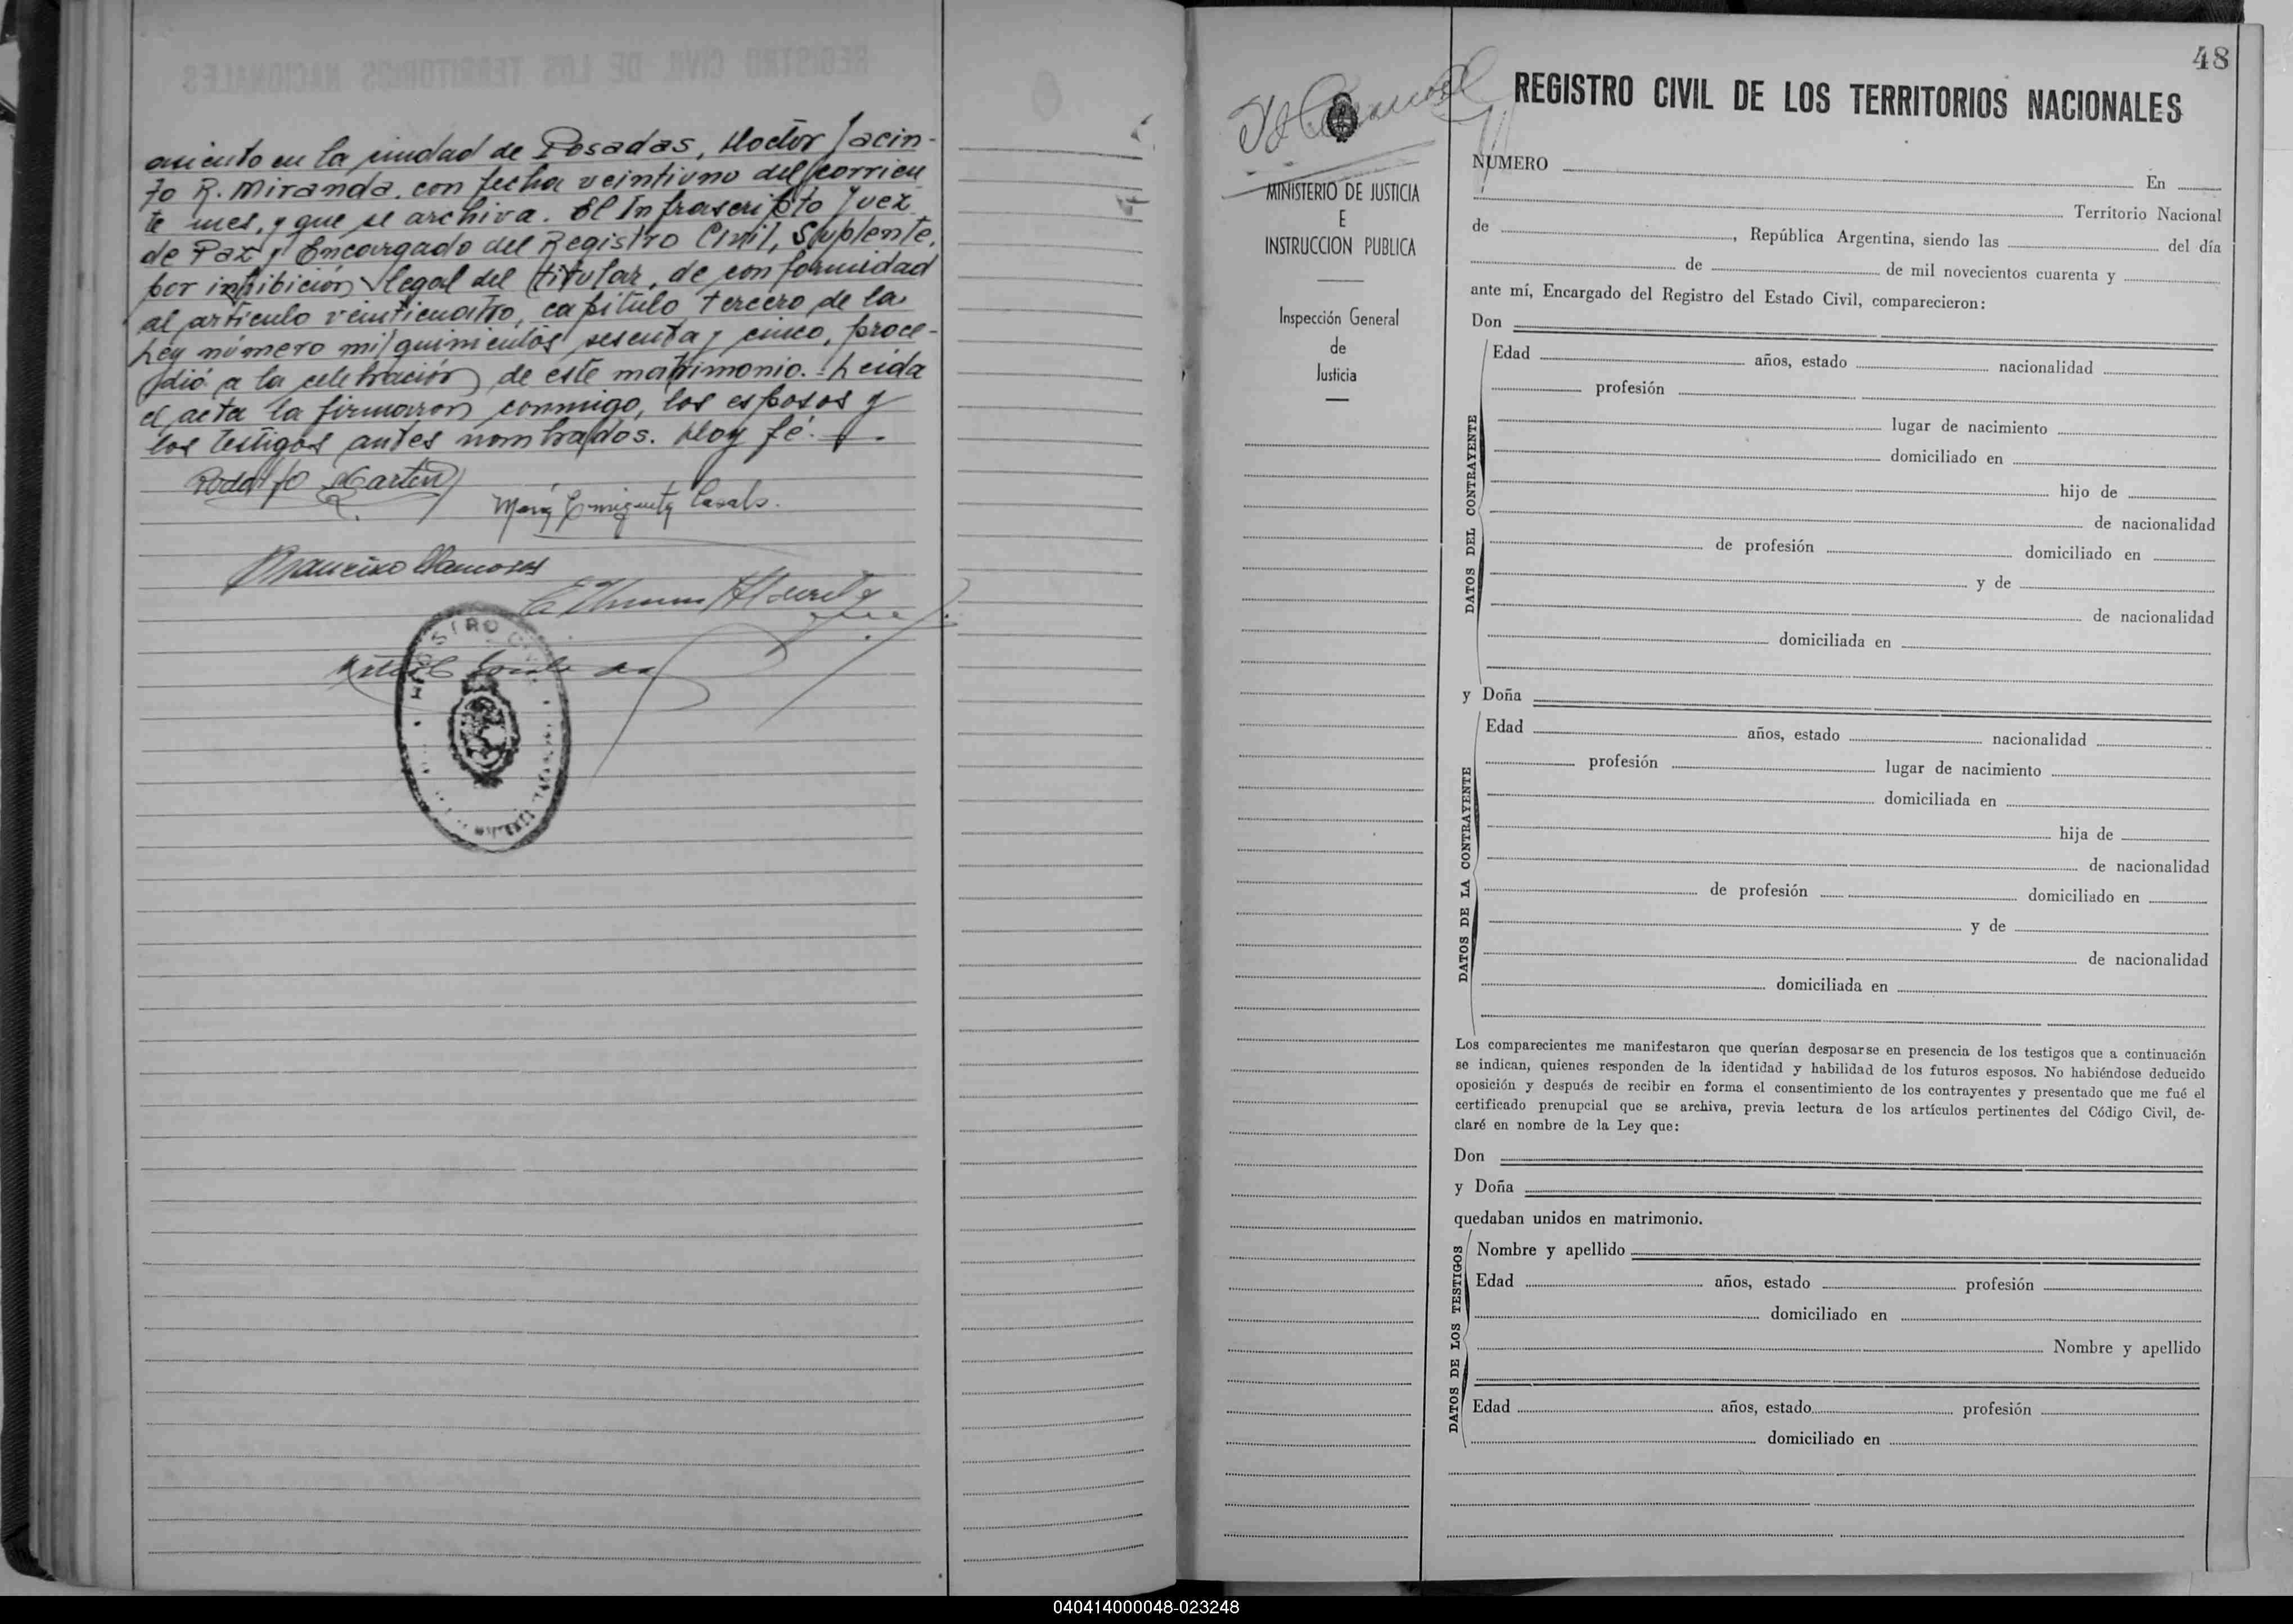 asiento en la ciudad de Posadas, Doctor Jacin-
to R. Miranda, con fecha veintiuno del corrien
te mes, y que se archiva. El Infrascripto Juez
de Paz y Encargado del Registro Civil, Suplente,
por inhibición legal del titular, de conformidad
al artículo veinticuatro, capítulo tercero de la
Ley número mil quinientos sesenta y cinco, proce-
dió a la celebración de este matrimonio. Leída
el acta la firmaron conmigo, los esposos y
los testigos antes nombrados. Doy fé.
Rodolfo Martin
María Enriqueta Casals.
REGISTRO
48
REGISTRO CIVIL DE LOS TERRITORIOS NACIONALES
MINISTERIO DE JUSTICIA
E
INSTRUCCION PUBLICA
Inspección General
de
Justicia
NÚMERO En
Territorio Nacional
de , República Argentina, siendo las del día
de de mil novecientos cuarenta y
ante mí, Encargado del Registro del Estado Civil, comparecieron:
Don
DATOS DEL CONTRAYENTE
Edad años, estado nacionalidad
profesión
lugar de nacimiento
domiciliado en
hijo de
de nacionalidad
de profesión domiciliado en
y de
de nacionalidad
domiciliada en
y Doña
DATOS DE LA CONTRAYENTE
Edad años, estado nacionalidad
profesión lugar de nacimiento
domiciliada en
hija de
de nacionalidad
de profesión domiciliado en
y de
de nacionalidad
domiciliada en
Los comparecientes me manifestaron que querían desposarse en presencia de los testigos que a continuación
se indican, quienes responden de la identidad y habilidad de los futuros esposos. No habiéndose deducido
oposición y después de recibir en forma el consentimiento de los contrayentes y presentado que me fué el
certificado prenupcial que se archiva, previa lectura de los artículos pertinentes del Código Civil, de-
claré en nombre de la Ley que:
Don
y Doña
quedaban unidos en matrimonio.
DATOS DE LOS TESTIGOS
Nombre y apellido
Edad años, estado profesión
domiciliado en
Nombre y apellido
Edad años, estado profesión
domiciliado en
040414000048-023248